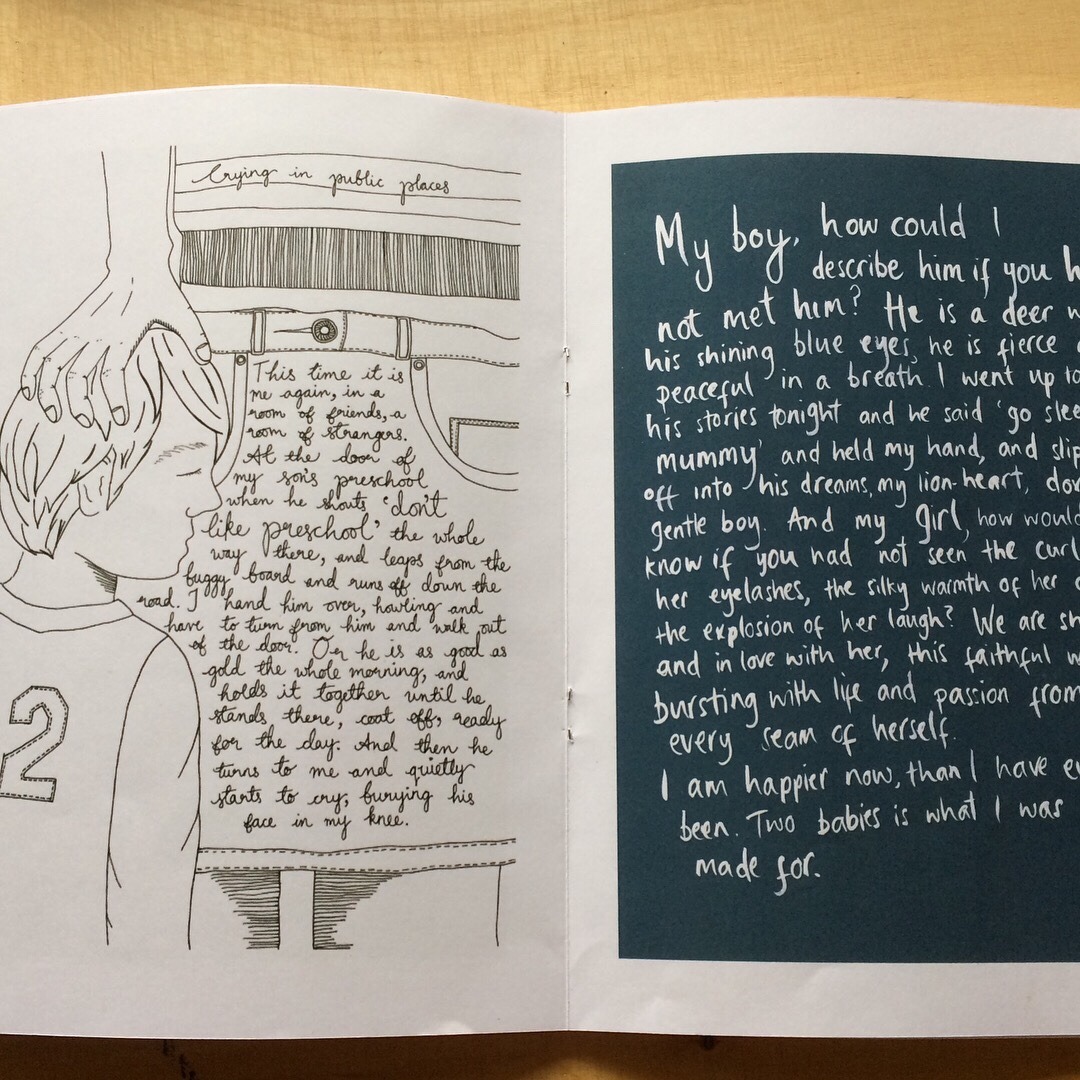 Crying in public places
This time it is
me again, in a
room of friends, a
room of strangers.
At the door of
my son's preschool
when he shouts 'don't
like preschool' the whole
way there, and leaps from the
buggy board and runs off down the
road. I hand him over, howling and
have to turn from him and walk out
of the door. Or he is as good as
gold the whole morning, and
holds it together until he
stands there, coat off, ready
for the day. And then he
turns to me and quietly
starts to cry, burying his
face in my knee.
2
My boy, how could I
describe him if you
not met him? He is a deer
his shining blue eyes, he is fierce
peaceful in a breath. I went up to
his stories tonight and he said 'go
mummy' and held my hand, and
off into his dreams, my lion-heart,
gentle boy. And my girl, how would
know if you had not seen the
her eyelashes, the silky warmth of her
the explosion of her laugh? We are
and in love with her, this faithful
bursting with life and passion from
every seam of herself.
I am happier now, than I have
been. Two babies is what I was
made for.